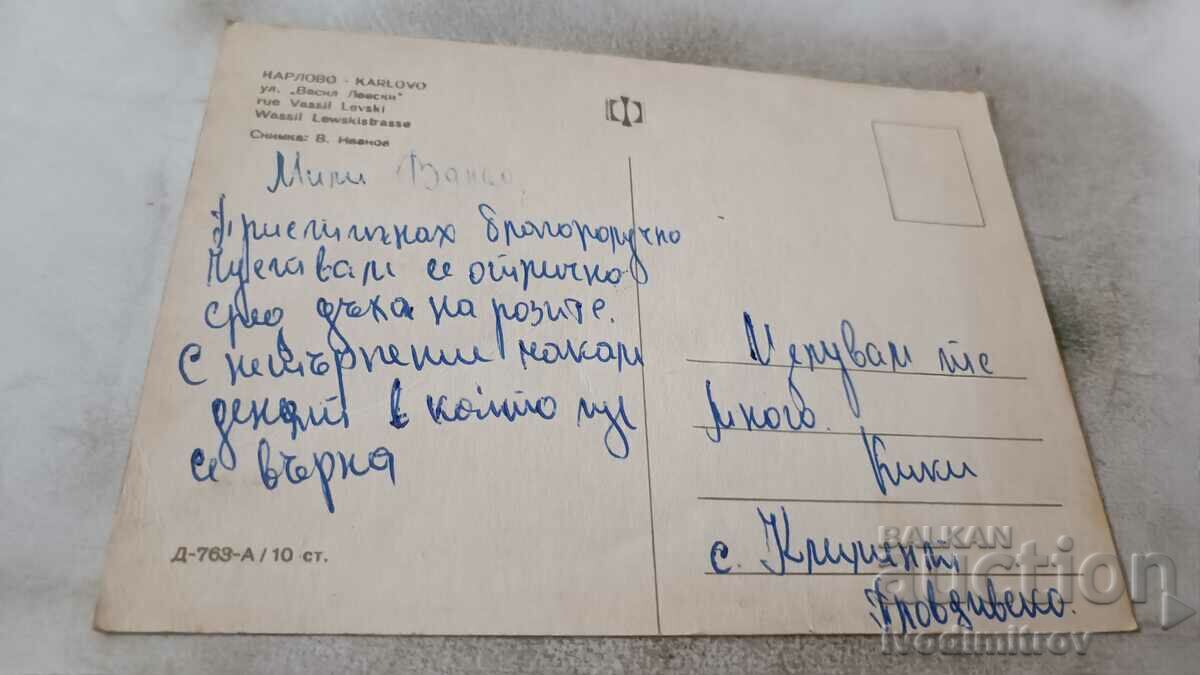 КАРЛОВО - KARLOVO
ул. „Васил Левски"
rue Vassil Levski
Wassil Lewskistrasse
Снимка: В. Иванов
Мили Ваньо,
Пристигнах благополучно
Чувствам се отлично
сред дъха на розите.
С нетърпение чакам
денят в който ще
се върна
Д-763-А / 10 ст.
Целувам те
много.
Кики
с.
Пловдивско.
BALKAN
auction
ivodimitrov